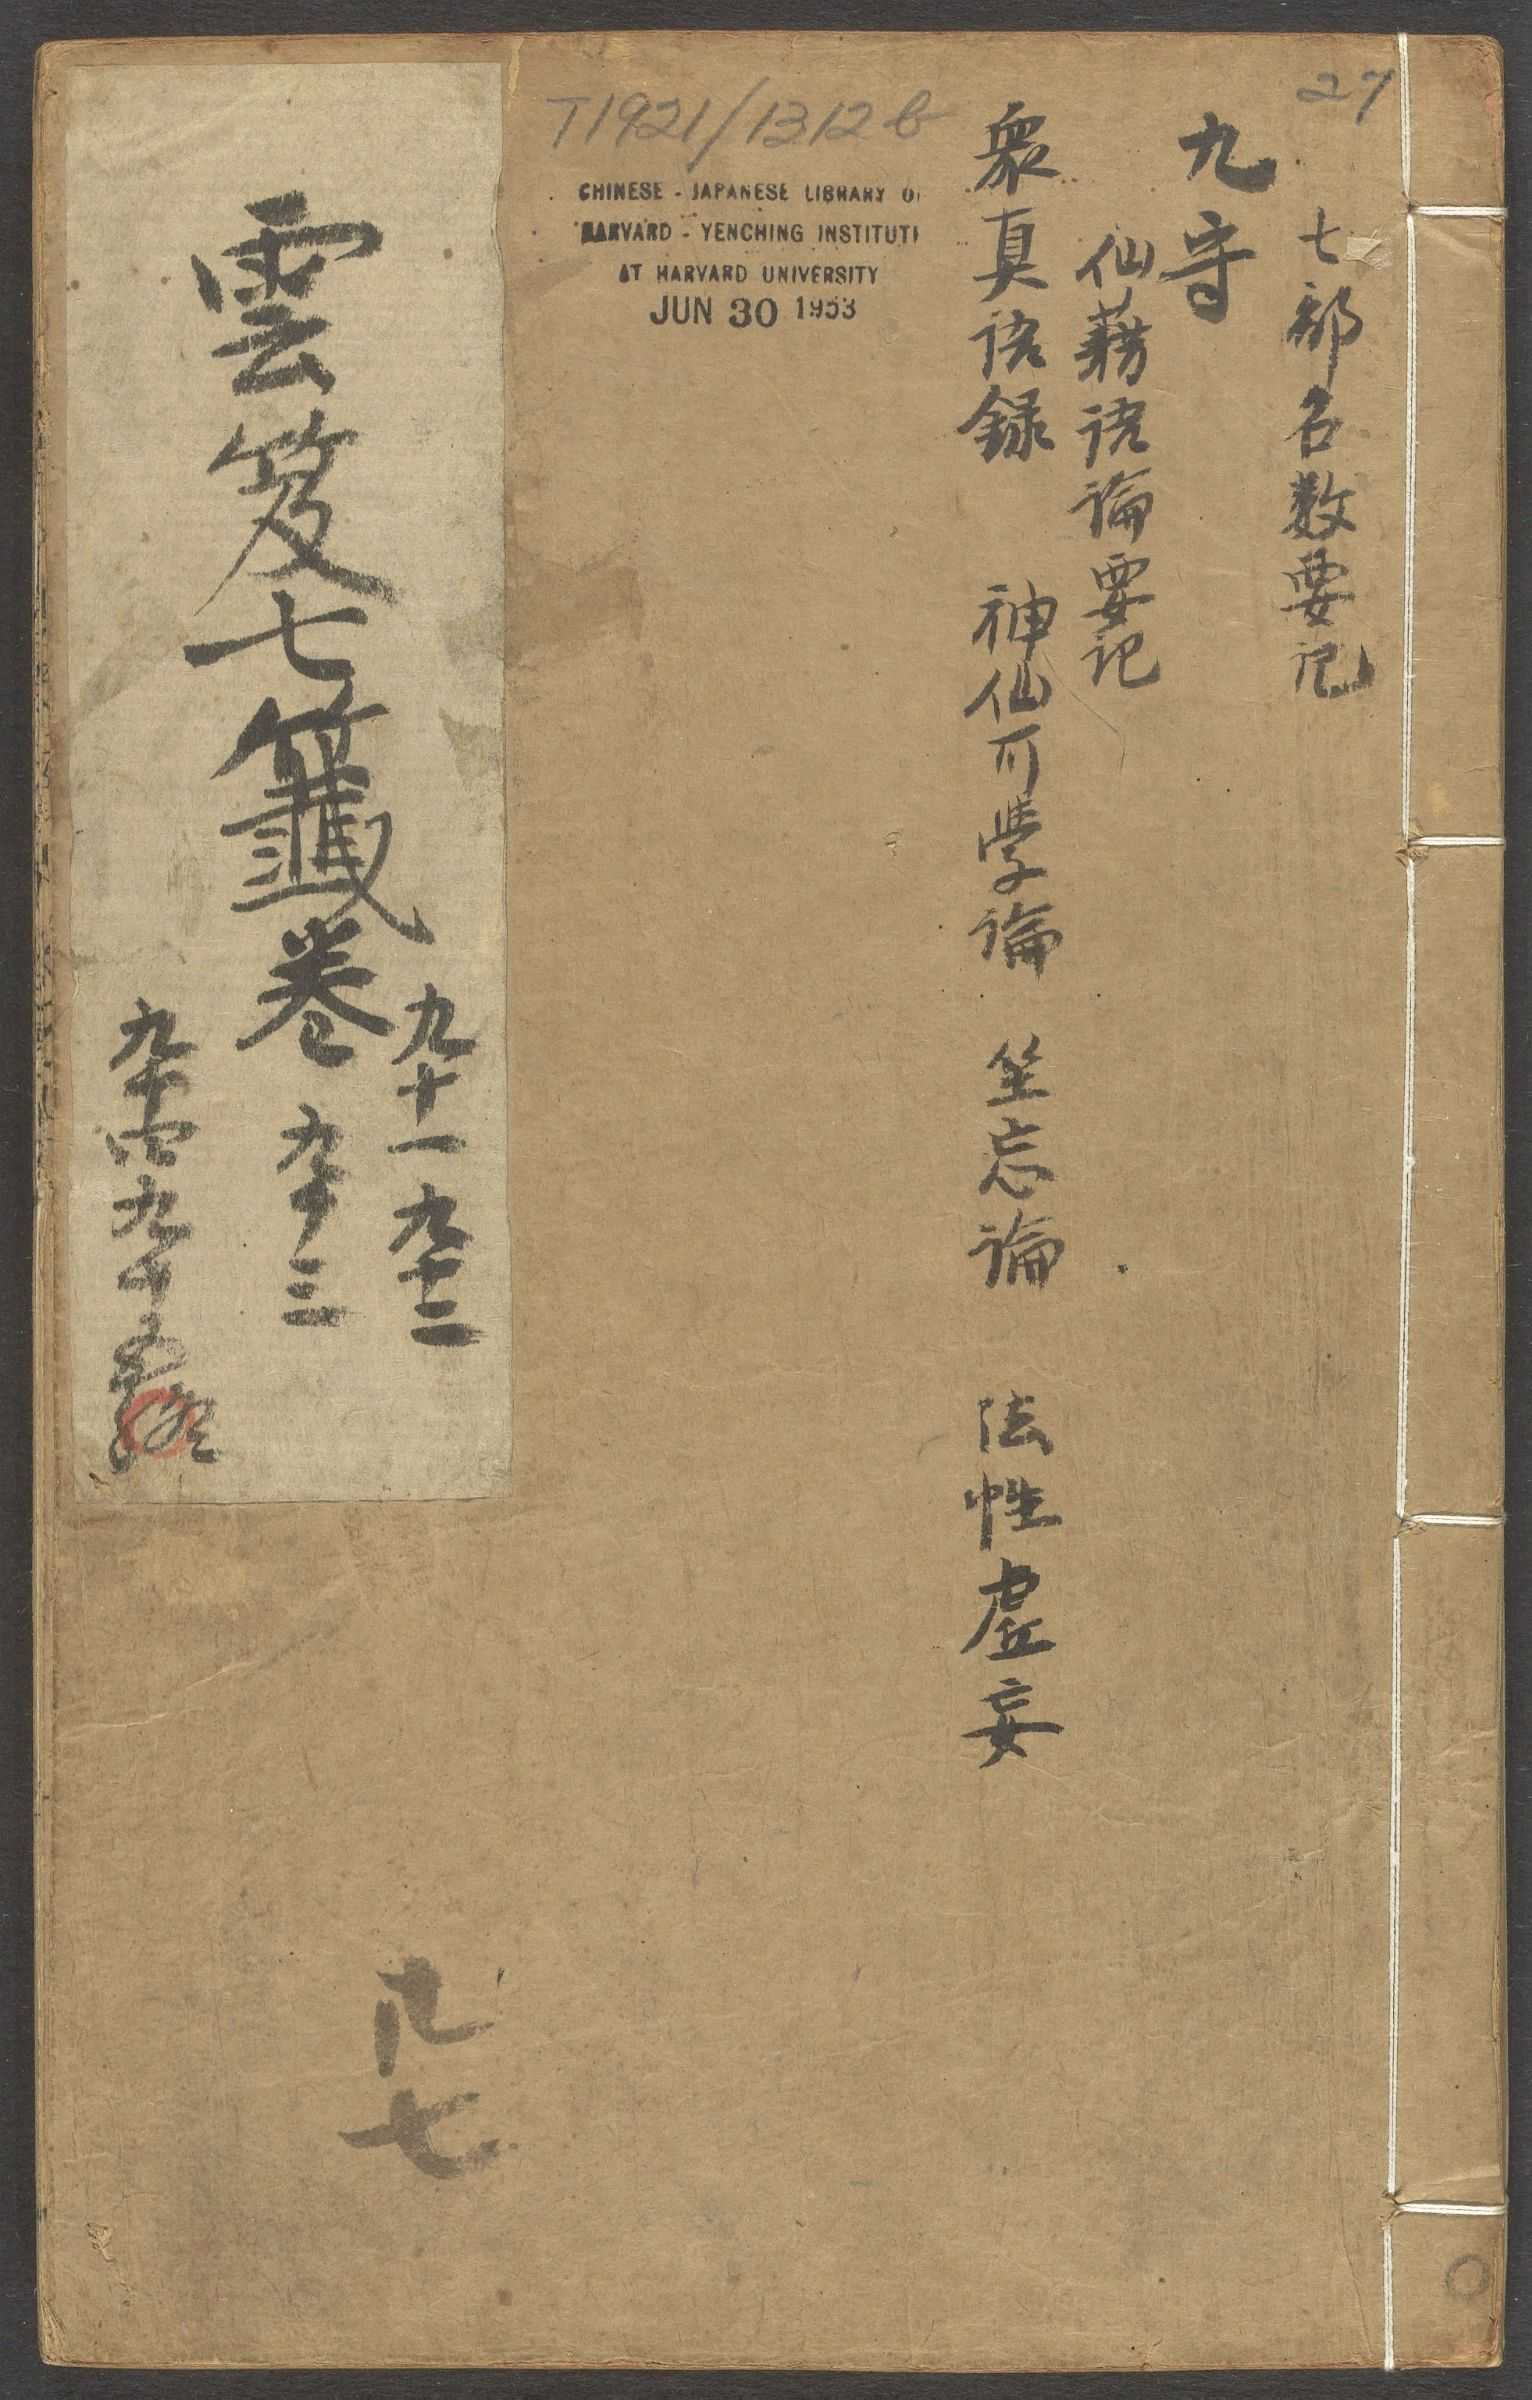 27
七部名数要记
九守
仙藉语論要记
衆真语録 神仙可學論 坐忘論 法性虚妄
T1921/1312b
CHINESE - JAPANESE LIBRARY O
HARVARD - YENCHING INSTITUT
AT HARVARD UNIVERSITY
JUN 30 1953
雲笈七籤卷
九十一 九十二
九十三
九十四 九十五
七